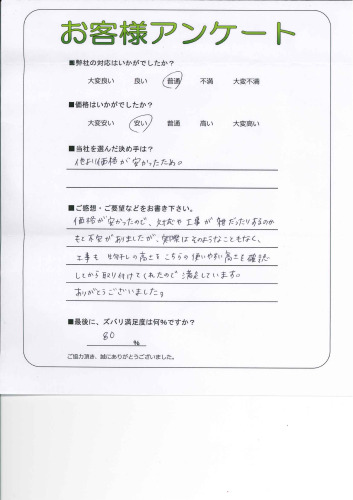 お客様アンケート
■弊社の対応はいかがでしたか?
大変良い 良い 普通 不満 大変不満
■価格はいかがでしたか?
大変安い 安い 普通 高い 大変高い
■当社を選んだ決め手は?
他より価格が安かったため。
■ご感想・ご要望などをお書き下さい。
価格が安かったので、対応や工事が雑だったりするのか
もと不安がありましたが、実際はそのようなこともなく、
工事も 物干しの高さをこちらの使いやすい高さを確認
してから取り付けてくれたので満足しています。
ありがとうございました。
■最後に、ズバリ満足度は何%ですか?
80 %
ご協力頂き、誠にありがとうございました。